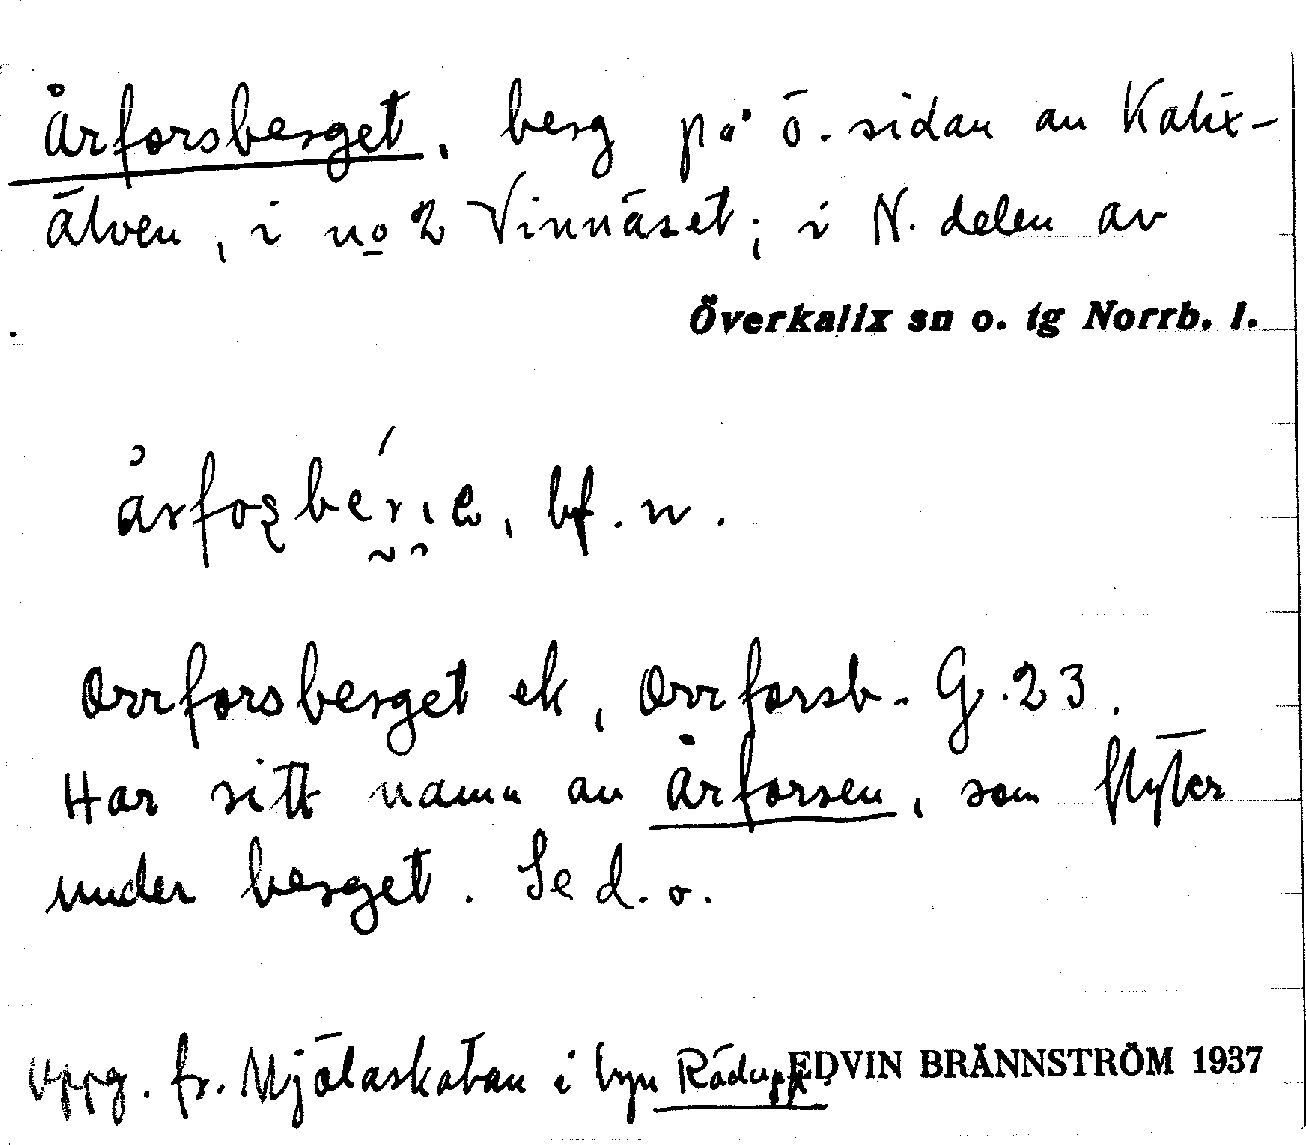 Årforsberget, berg på ö. sidan av Kalix-
älven, i no 2 Vinnäset; i N. delen av
Överkalix sn o. tg Norrb. l.
bf. n.
Orrforsberget ek, Orrforsb. G. 23.
Har sitt namn av Årforsen, som flyter
under berget. Se d. o.
Uppg. fr. Mjölaskatan i byn Rödupp. EDVIN BRÄNNSTRÖM 1937